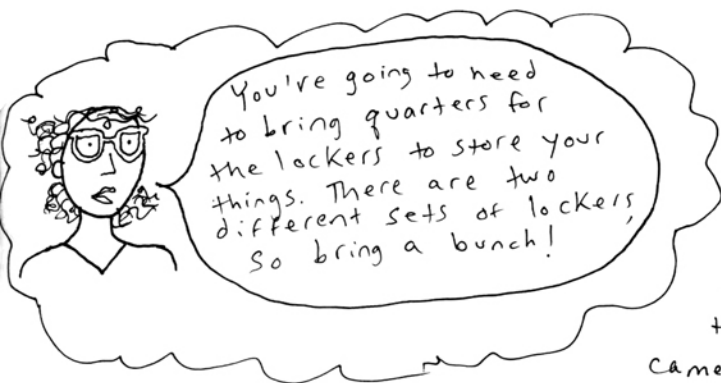 You're going to need
to bring quarters for
the lockers to store your
things. There are two
different sets of lockers,
So bring a bunch!
came